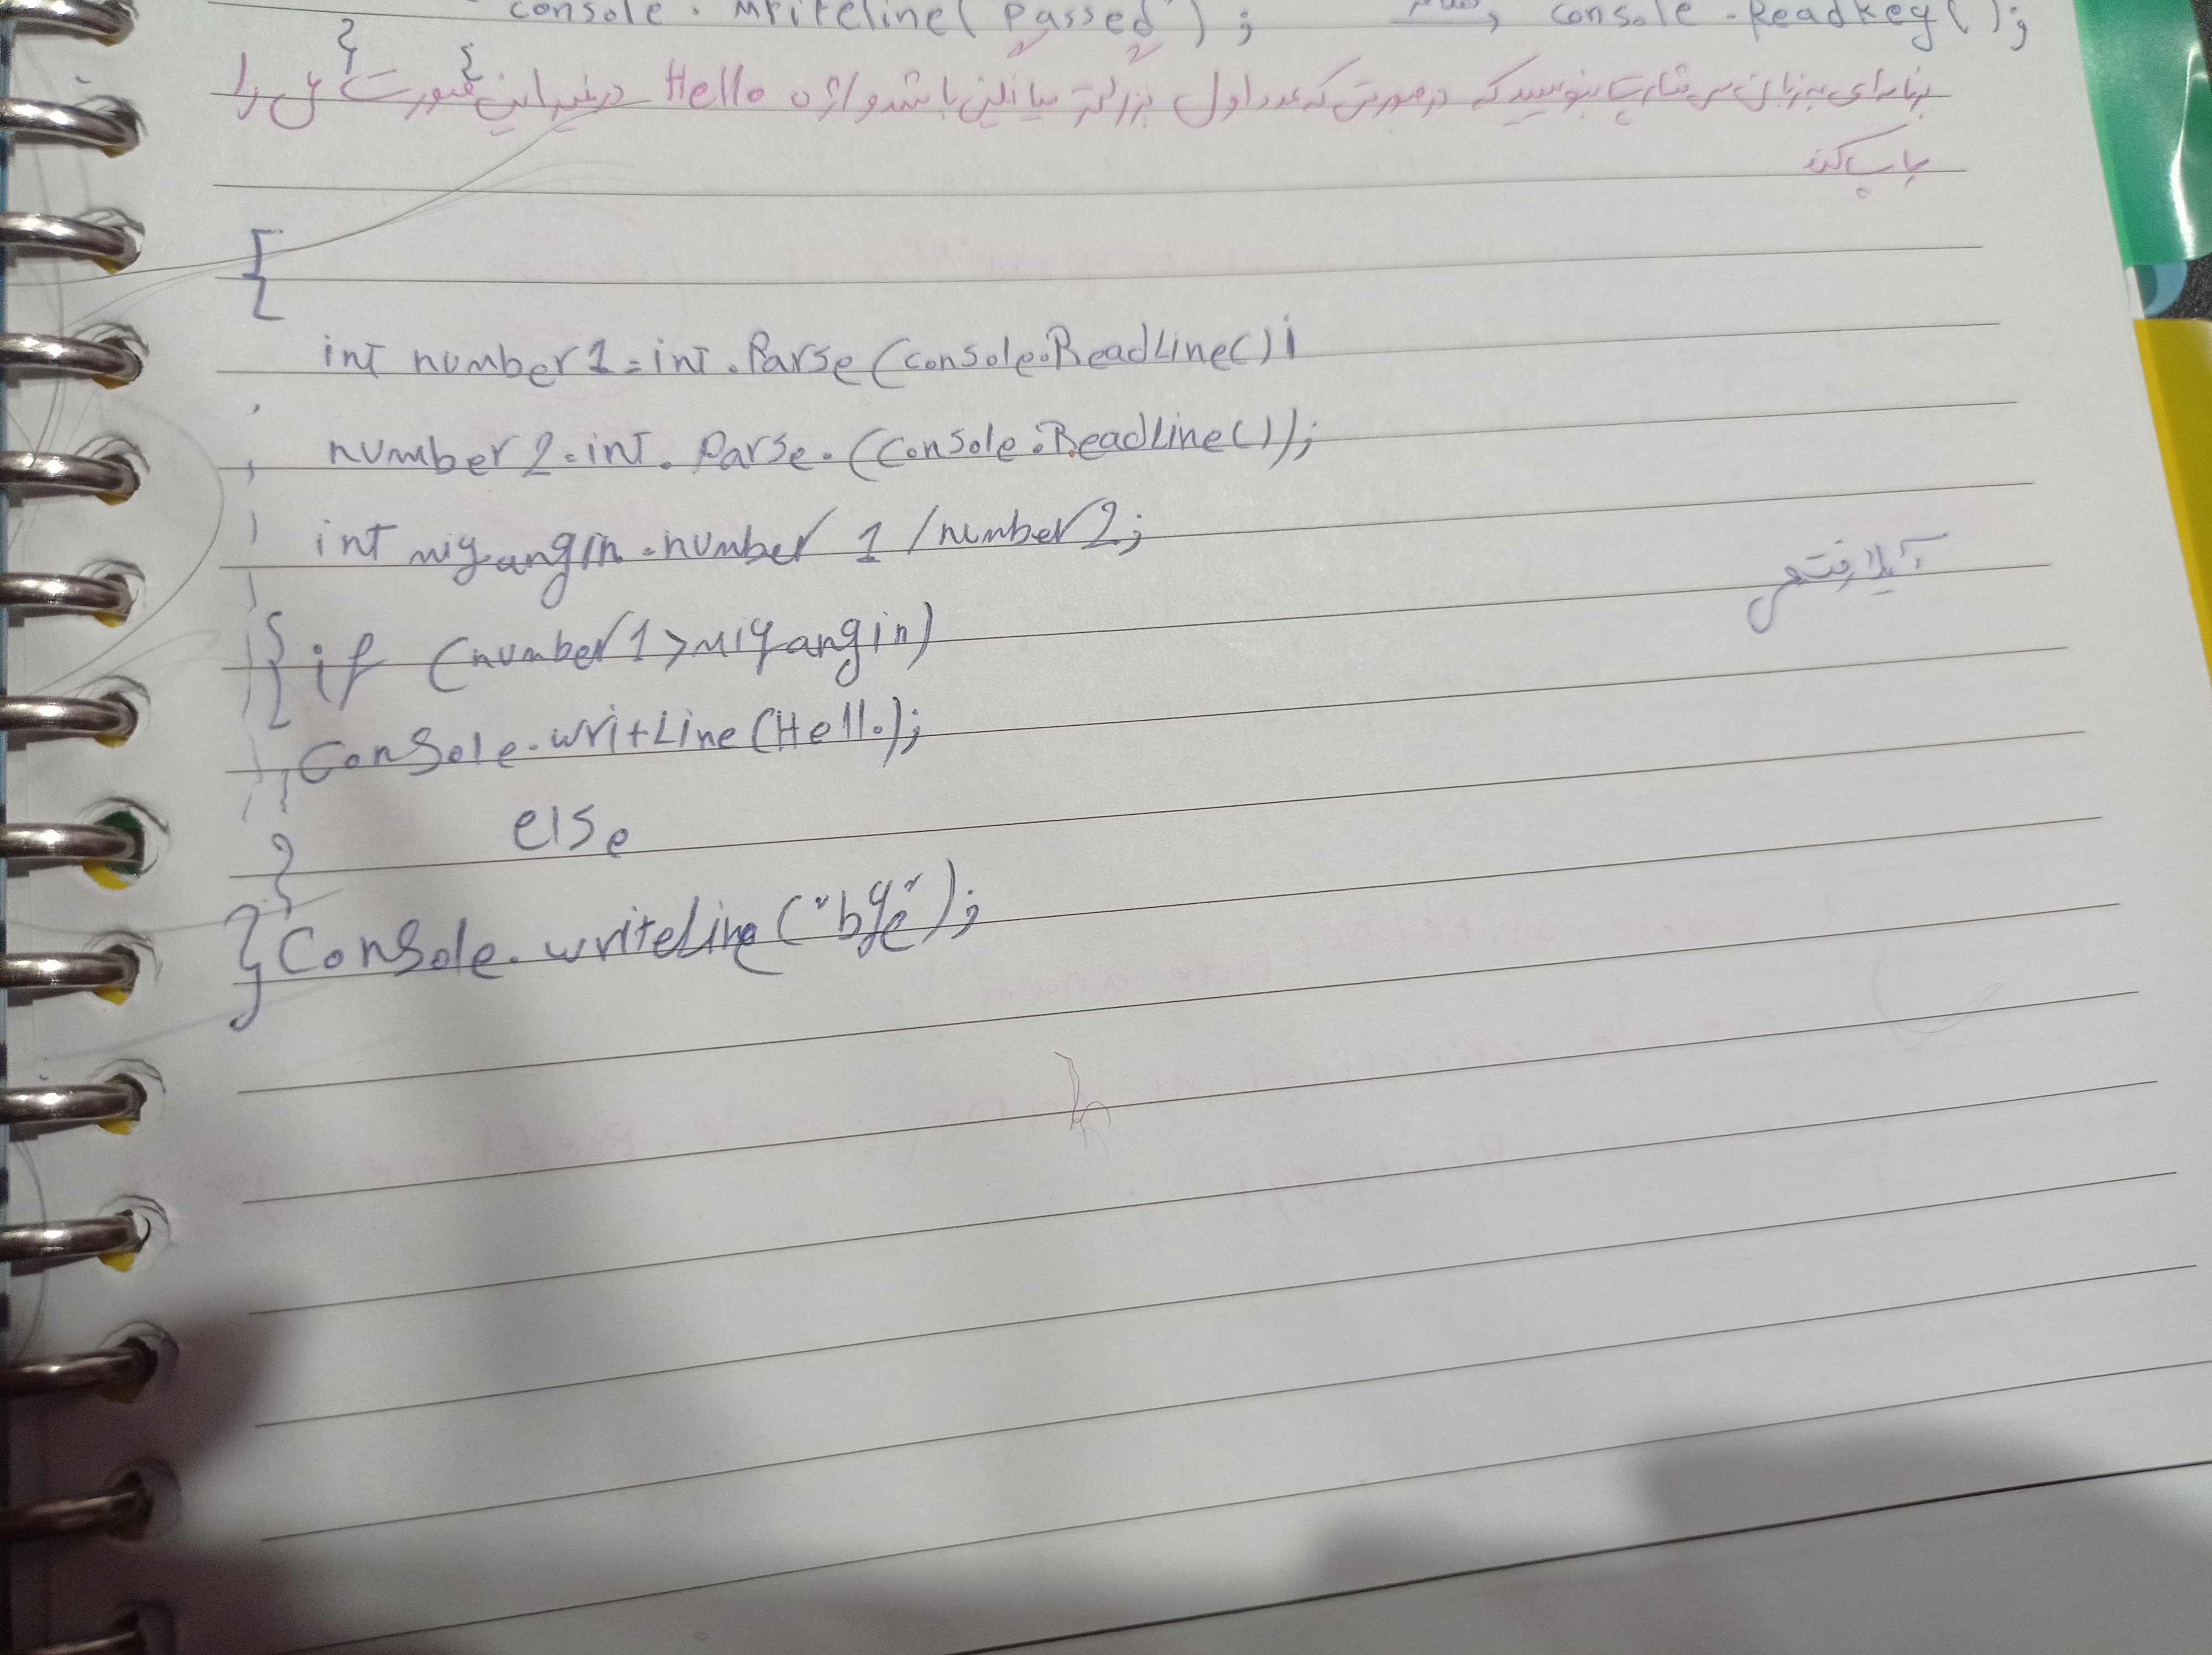 console . Writeline( Passed" ) ; console . ReadKey( ) ;
}
برنامه‌ای به زبان سی شارپ بنویسید که در صورتی که عدد اول بزرگتر میانگین باشد واژه Hello در غیر این صورت را
چاپ کند
{
int number1 = int . Parse (console.ReadLine() ;
number2 = int . Parse . (Console.ReadLine());
int miyangin = number 1 / number2;
آیلا رفتعی
{ if (number1>miyangin)
Console.writLine (Hello);
else
}
}Console. writeLine ("bye");